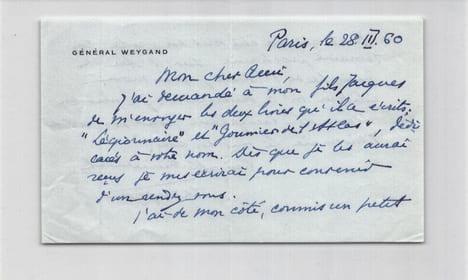 GÉNÉRAL WEYGAND
Paris, le 28 III 60
Mon cher Ami,
J'ai demandé à mon fils Jacques
de m'envoyer les deux livres qu'il a écrits,
"Légionnaire" et "Goumier de l'Atlas", dédi
cacés à votre nom. Dès que je les aurai
reçus je vous écrirai pour convenir
d'un rendez vous.
J'ai de mon côté, commis un petit